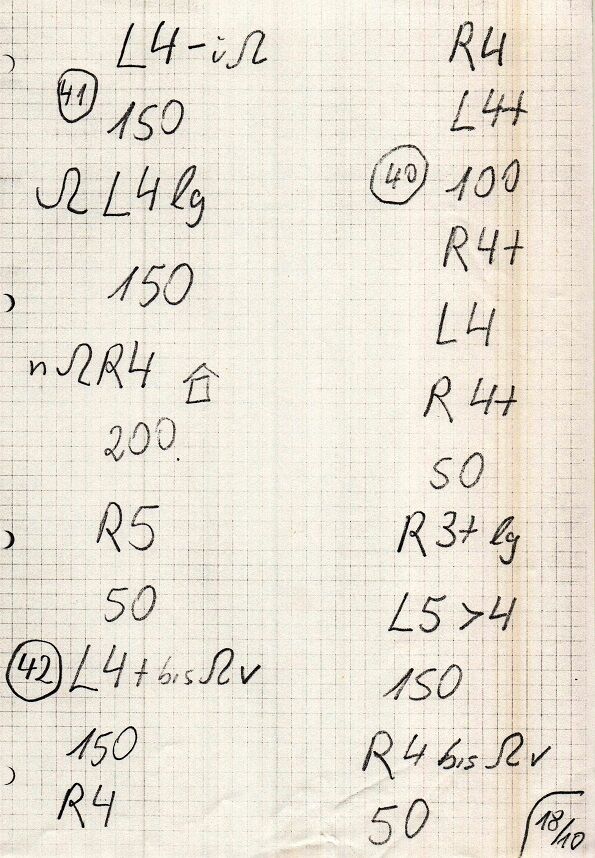 L4-iΩ
41
150
Ω L4 lg
150
n Ω R4
200.
R5
50
42 L4+ bis Ω v
150
R4
R4
L4+
40 100
R4+
L4
R 4+
50
R3+ lg
L5 >4
150
R4 bis Ω v
50
18/10